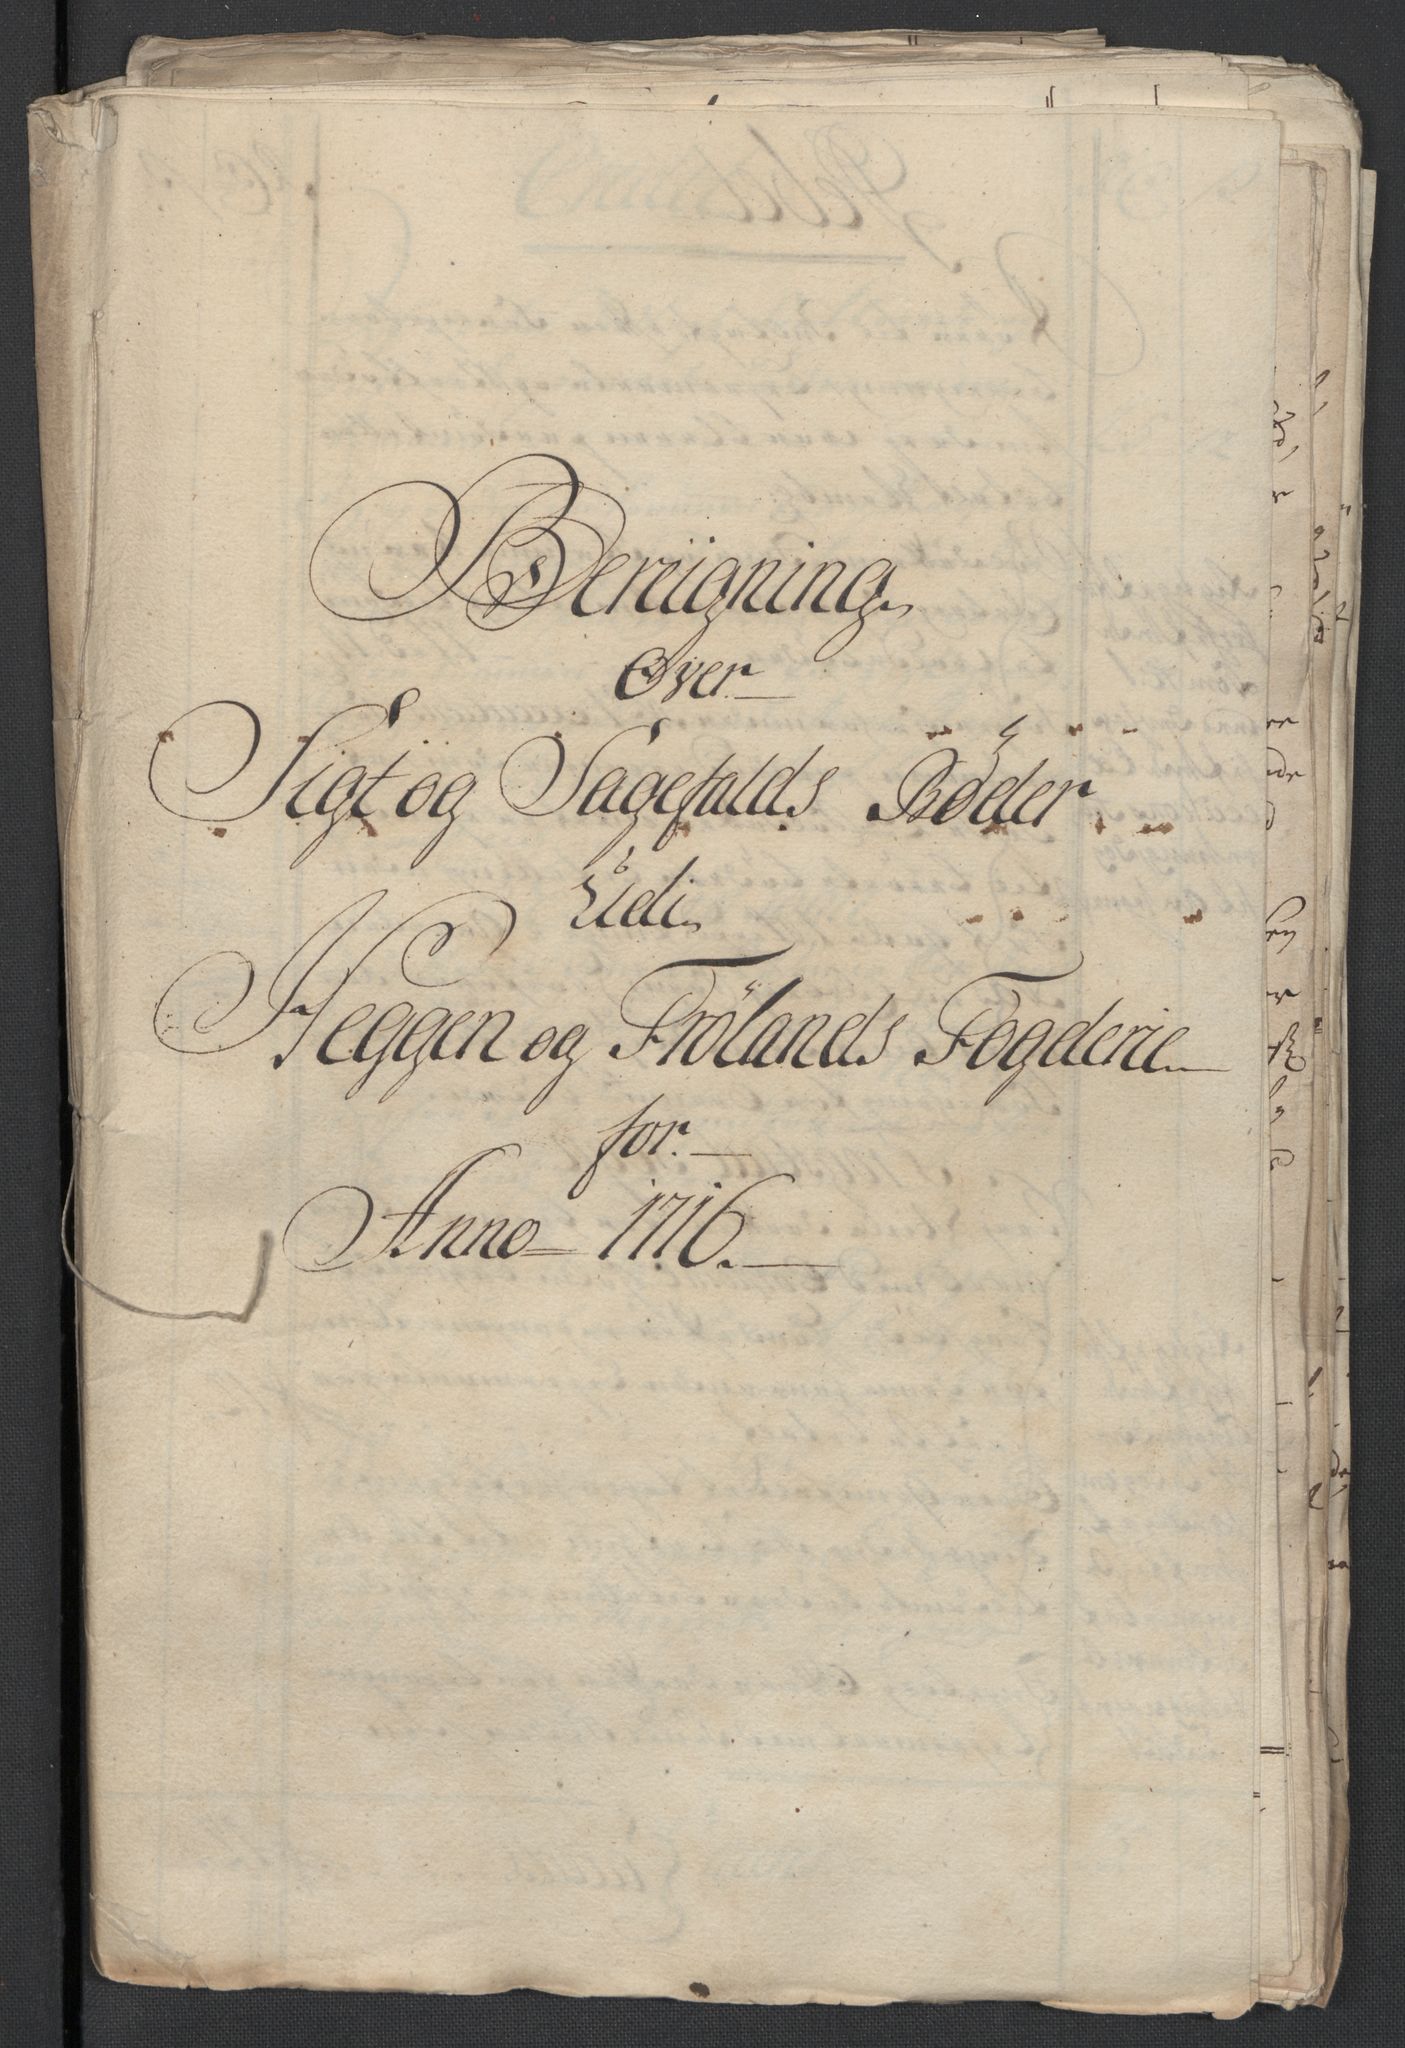 Bereigning
Over
Sigt og Sagefalds Bøder
Udi
Heggen og Frölands Fogderie
for
Anno 1716.